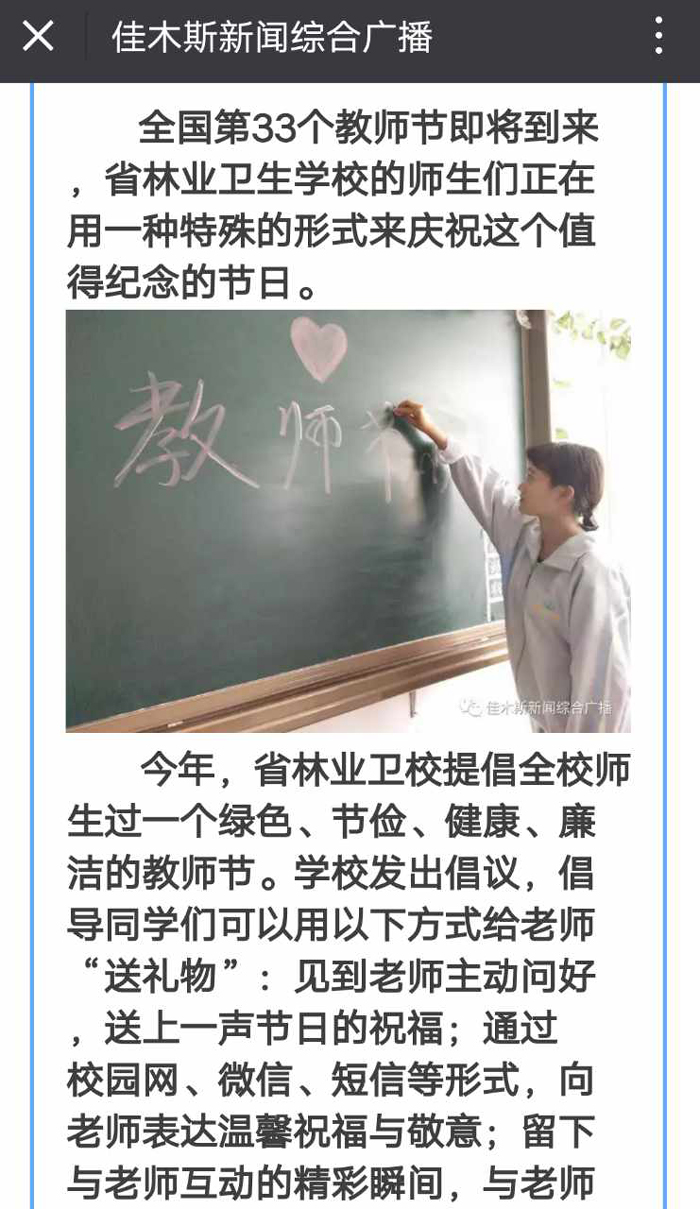 佳木斯新闻综合广播
全国第33个教师节即将到来
，省林业卫生学校的师生们正在
用一种特殊的形式来庆祝这个值
得纪念的节日。
教师节
佳木斯新闻综合广播
今年，省林业卫校提倡全校师
生过一个绿色、节俭、健康、廉
洁的教师节。学校发出倡议，倡
导同学们可以用以下方式给老师
“送礼物”：见到老师主动问好
，送上一声节日的祝福；通过
校园网、微信、短信等形式，向
老师表达温馨祝福与敬意；留下
与老师互动的精彩瞬间，与老师